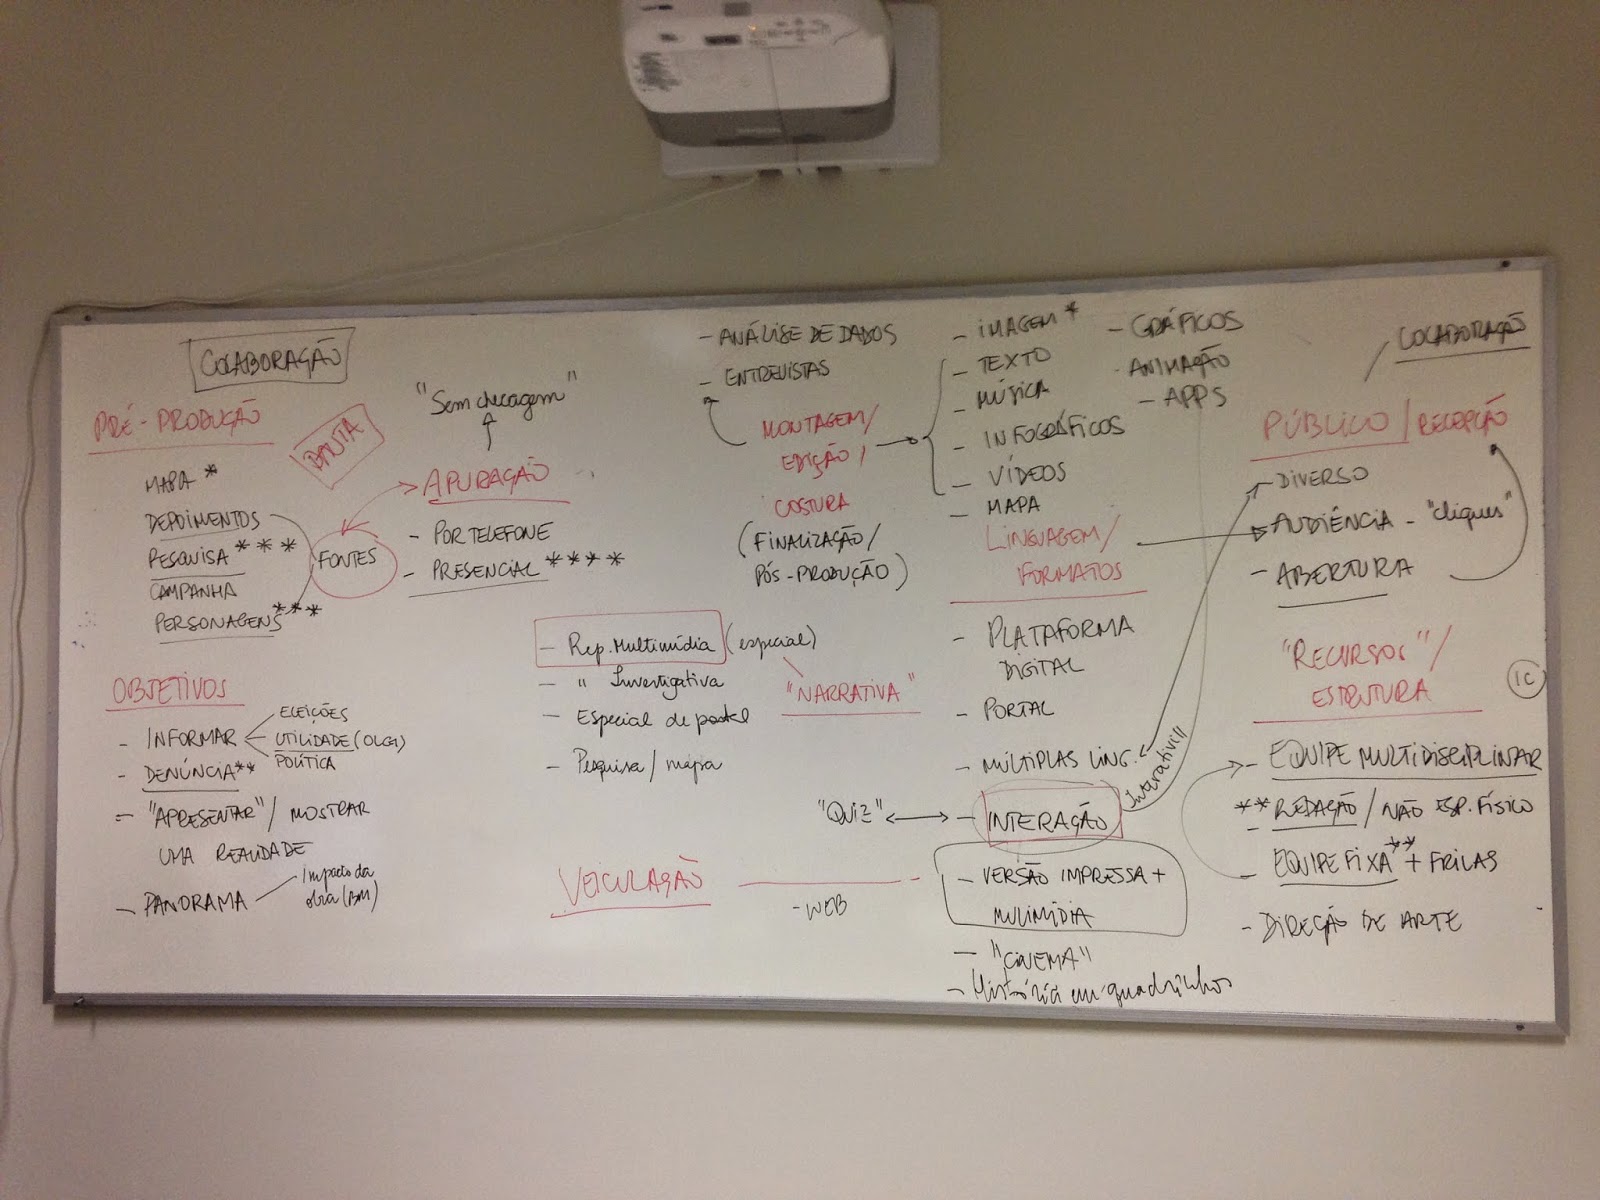 COLABORAÇÃO
PRÉ-PRODUÇÃO
PAUTA
MAPA *
DEPOIMENTOS
PESQUISA ***
CAMPANHA
PERSONAGENS ***
FONTES
"Sem checagem"
APURAÇÃO
- POR TELEFONE
- PRESENCIAL ****
OBJETIVOS
- INFORMAR
ELEIÇÕES
UTILIDADE
POLÍTICA
- DENÚNCIA **
- "APRESENTAR" / MOSTRAR
UMA REALIDADE
- PANORAMA
Impacto da
obra (BM)
- ANÁLISE DE DADOS
- ENTREVISTAS
MONTAGEM/
EDIÇÃO/
COSTURA
(FINALIZAÇÃO/
PÓS-PRODUÇÃO)
- Rep. Multimídia (especial)
- " Investigativa
- Especial de portal
- Pesquisa / mapa
"NARRATIVA"
VEICULAÇÃO
- WEB
- IMAGEM *
- TEXTO
- MÚSICA
- INFOGRÁFICOS
- VÍDEOS
- MAPA
- GRÁFICOS
- ANIMAÇÃO
- APPS
LINGUAGEM/
FORMATOS
- PLATAFORMA
DIGITAL
- PORTAL
- MÚLTIPLAS LING.
"QUIZ"
- INTERAÇÃO
- VERSÃO IMPRESSA +
MULIMÍDIA
- "CINEMA"
- História em quadrinhos
/ COLABORAÇÃO
PÚBLICO / RECEPÇÃO
- DIVERSO
- AUDIÊNCIA - "cliques"
- ABERTURA
"RECURSOS" /
ESTRUTURA
1C
- EQUIPE MULTIDISCIPLINAR
** - REDAÇÃO / NÃO ESP. FÍSICO
- EQUIPE FIXA ** + FRILAS
- DIREÇÃO DE ARTE